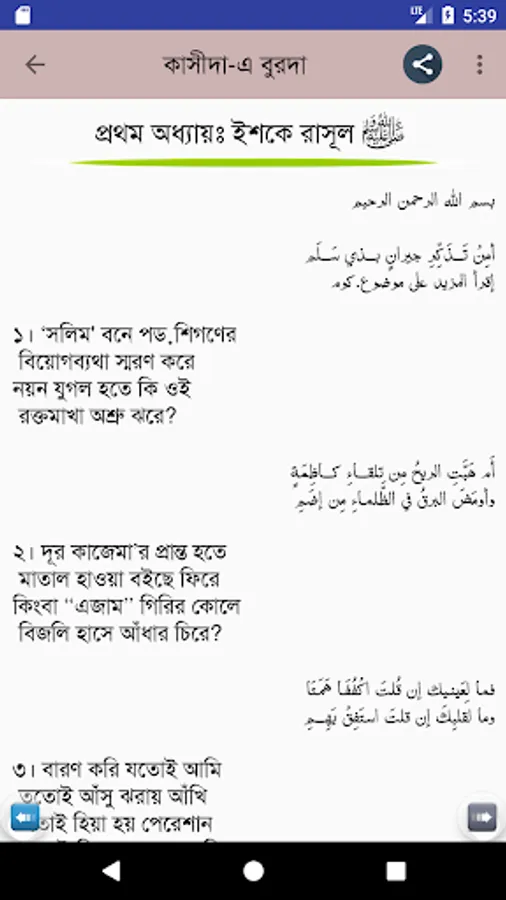 LTE 5:39
কাসীদা-এ বুরদা
প্রথম অধ্যায়ঃ ইশকে রাসূল ﷺ
بسم الله الرحمن الرحيم
أمِنْ تَــذَكِّرِ جيرانٍ بــذي سَــلَم
إقرأ المزيد على موضوع.كوم
১। ‘সলিম' বনে পড়শিগণের
বিয়োগব্যথা স্মরণ করে
নয়ন যুগল হতে কি ওই
রক্তমাখা অশ্রু ঝরে?
أَم هَبَّتِ الريحُ مِن تِلقــاءِ كــاظِمَةٍ
وأومَضَ البرقُ في الظَّلماءِ مِن إضَمِ
২। দূর কাজেমা'র প্রান্ত হতে
মাতাল হাওয়া বইছে ফিরে
কিংবা “এজাম” গিরির কোলে
বিজলি হাসে আঁধার চিরে?
فما لِعَينيك إن قُلتَ اكْفُفَا هَمَتَا
وما لقلبِكَ إن قلتَ استَفِقْ يَهِــمِ
৩। বারণ করি যতোই আমি
ততোই আঁসু ঝরায় আঁখি
ততোই হিয়া হয় পেরেশান